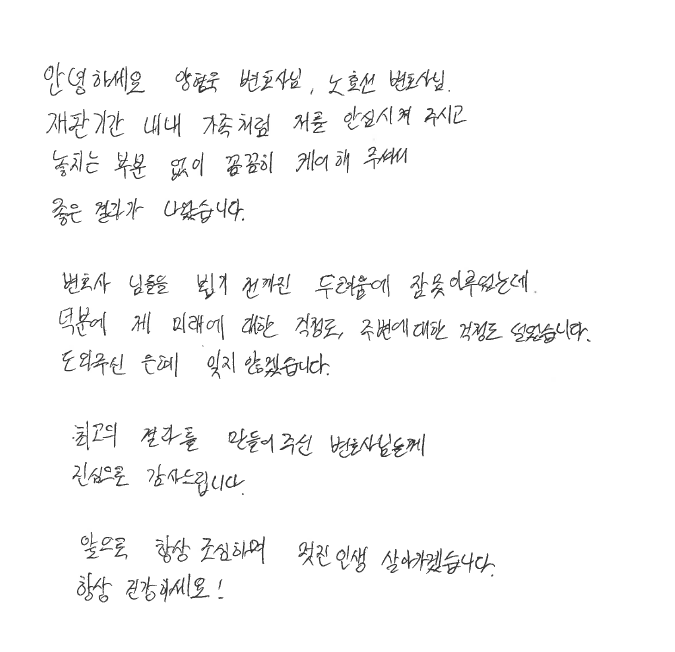 안녕하세요 양형욱 변호사님, 노효선 변호사님.
재판기간 내내 가족처럼 저를 안심시켜 주시고
놓치는 부분 없이 꼼꼼히 케어해 주셔서
좋은 결과가 나왔습니다.
변호사 님들을 뵙기 전까진 두려움에 잠못이루었는데.
덕분에 제 미래에 대한 걱정도, 주변에대한 걱정도 덜었습니다.
도와주신 은혜 잊지 않겠습니다.
최고의 결과를 만들어주신 변호사님들께
진심으로 감사드립니다.
앞으로 항상 조심하며 멋진인생 살아가겠습니다.
항상 건강하세요!